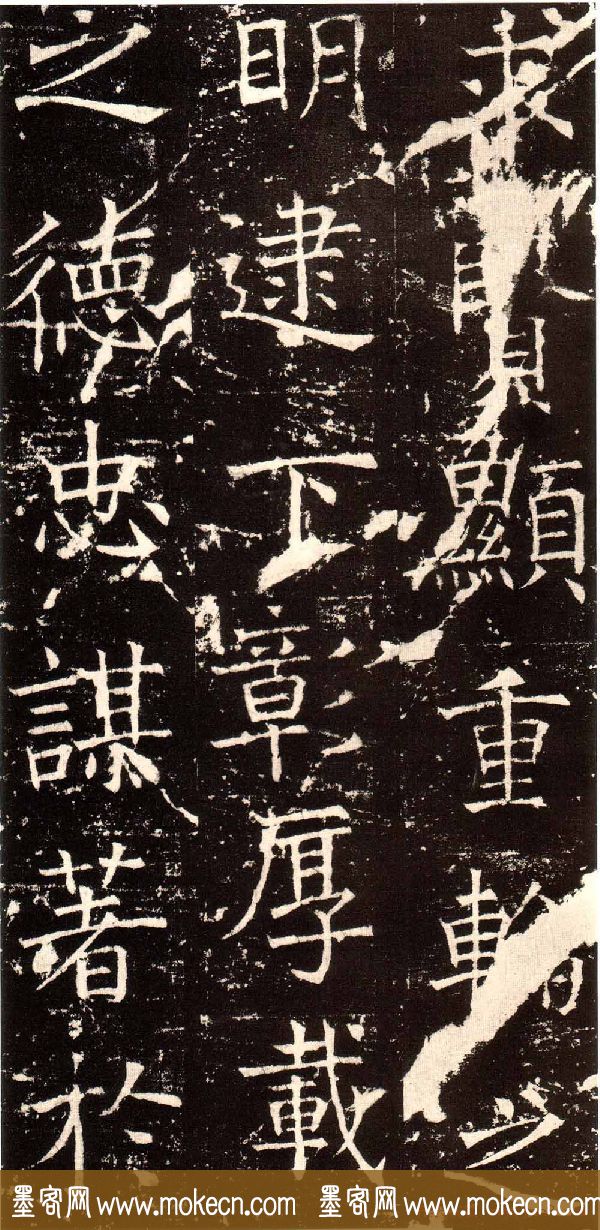 求賢顯重輪之
明逮下彰厚載
之德忠謀著於
墨客网 www.mokecn.com 墨客网 www.mokecn.com